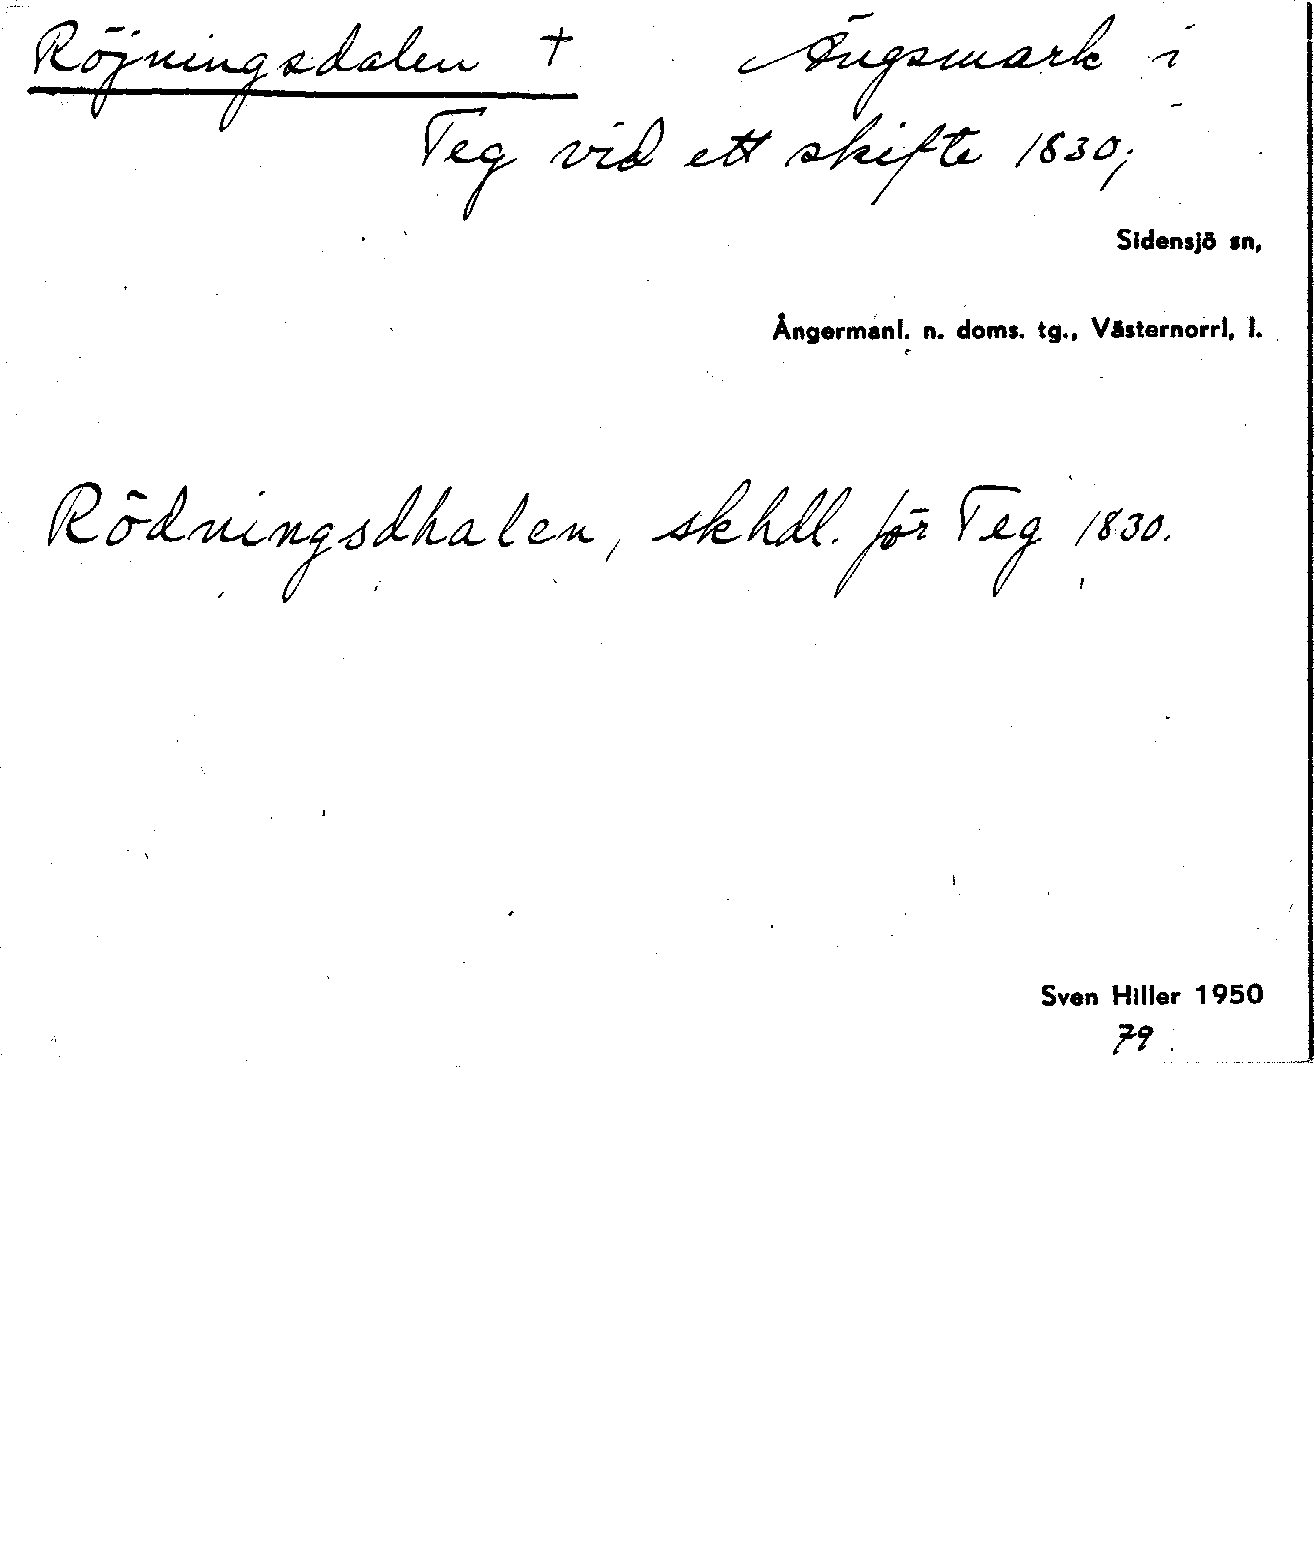 Röjningsdalen † Ängsmark i
Teg vid ett skifte 1830;
Sidensjö sn,
Ångermanl. n. doms. tg., Västernorrl. l.
Rödningsdhalen, skhdl. för Teg 1830.
Sven Hiller 1950
79